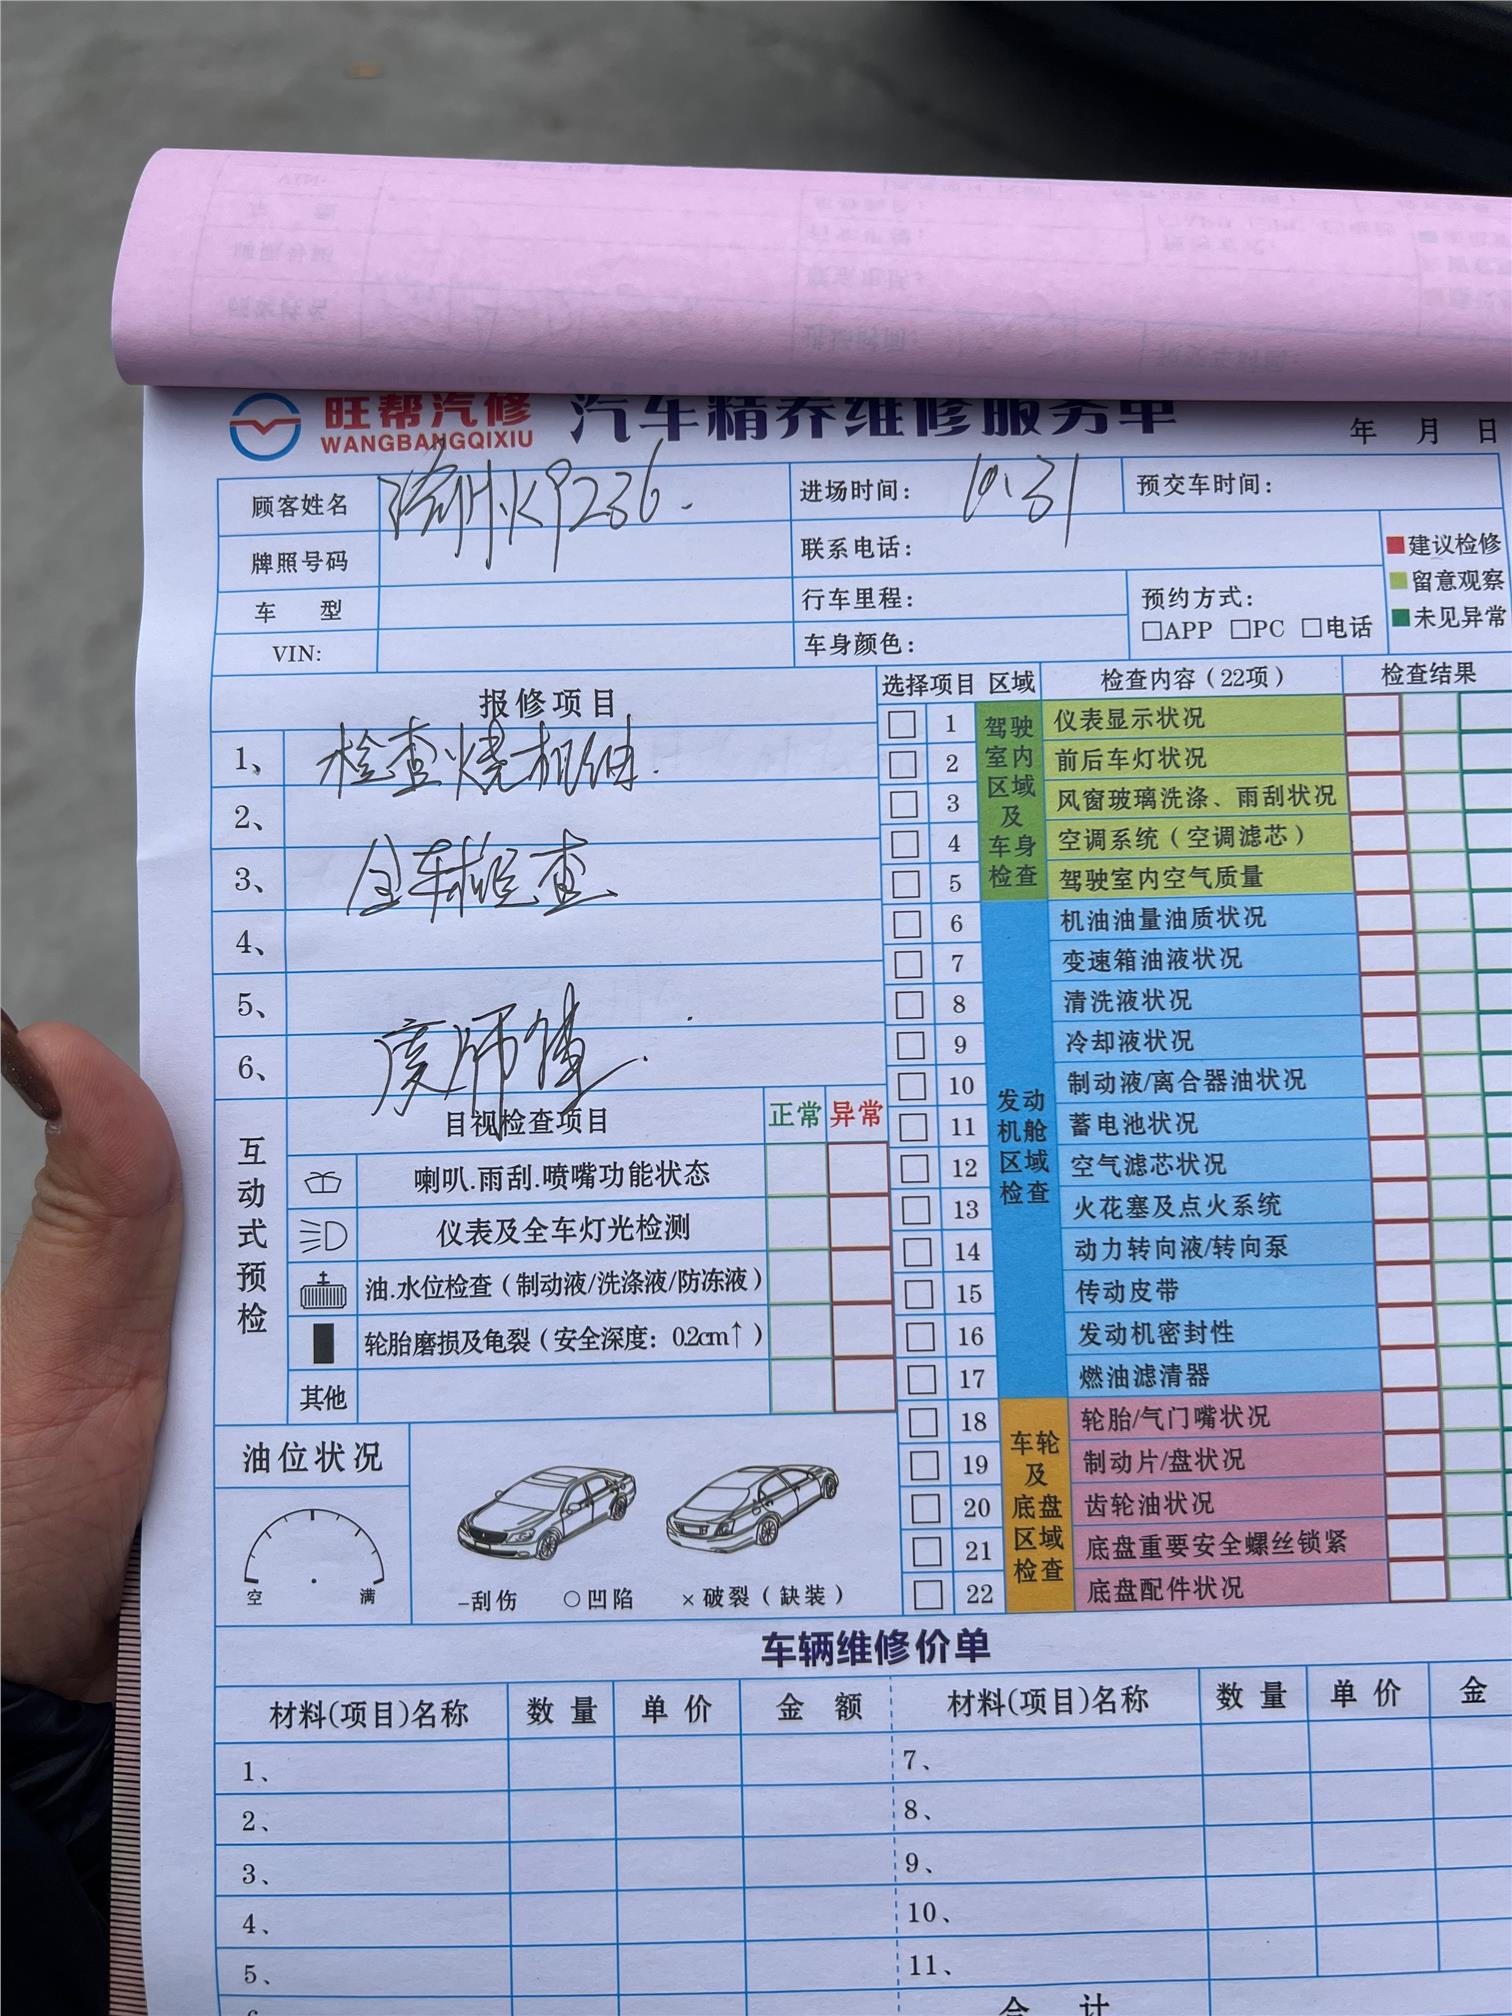 旺帮汽修 汽车精养维修服务单
WANGBANGQIXIU
年 月 日
顾客姓名 徐州K9236. 进场时间: 10.31 预交车时间:
牌照号码 联系电话:
■建议检修
■留意观察
■未见异常
车 型 行车里程: 预约方式:
□APP □PC □电话
VIN: 车身颜色:
报修项目
1、 检查烧机油.
2、
3、 全车检查
4、
5、
6、 师傅.
选择项目 区域 检查内容(22项) 检查结果
驾驶室内区域及车身检查
1 仪表显示状况
2 前后车灯状况
3 风窗玻璃洗涤、雨刮状况
4 空调系统(空调滤芯)
5 驾驶室内空气质量
发动机舱区域检查
6 机油油量油质状况
7 变速箱油液状况
8 清洗液状况
9 冷却液状况
10 制动液/离合器油状况
11 蓄电池状况
12 空气滤芯状况
13 火花塞及点火系统
14 动力转向液/转向泵
15 传动皮带
16 发动机密封性
17 燃油滤清器
车轮及底盘区域检查
18 轮胎/气门嘴状况
19 制动片/盘状况
20 齿轮油状况
21 底盘重要安全螺丝锁紧
22 底盘配件状况
互动式预检
目视检查项目 正常 异常
喇叭.雨刮.喷嘴功能状态
仪表及全车灯光检测
油.水位检查(制动液/洗涤液/防冻液)
轮胎磨损及龟裂(安全深度: 0.2cm↑)
其他
油位状况
空 满
-刮伤 ○凹陷 ×破裂(缺装)
车辆维修价单
材料(项目)名称 数量 单价 金额 材料(项目)名称 数量 单价 金
1、 7、
2、 8、
3、 9、
4、 10、
5、 11、
合 计